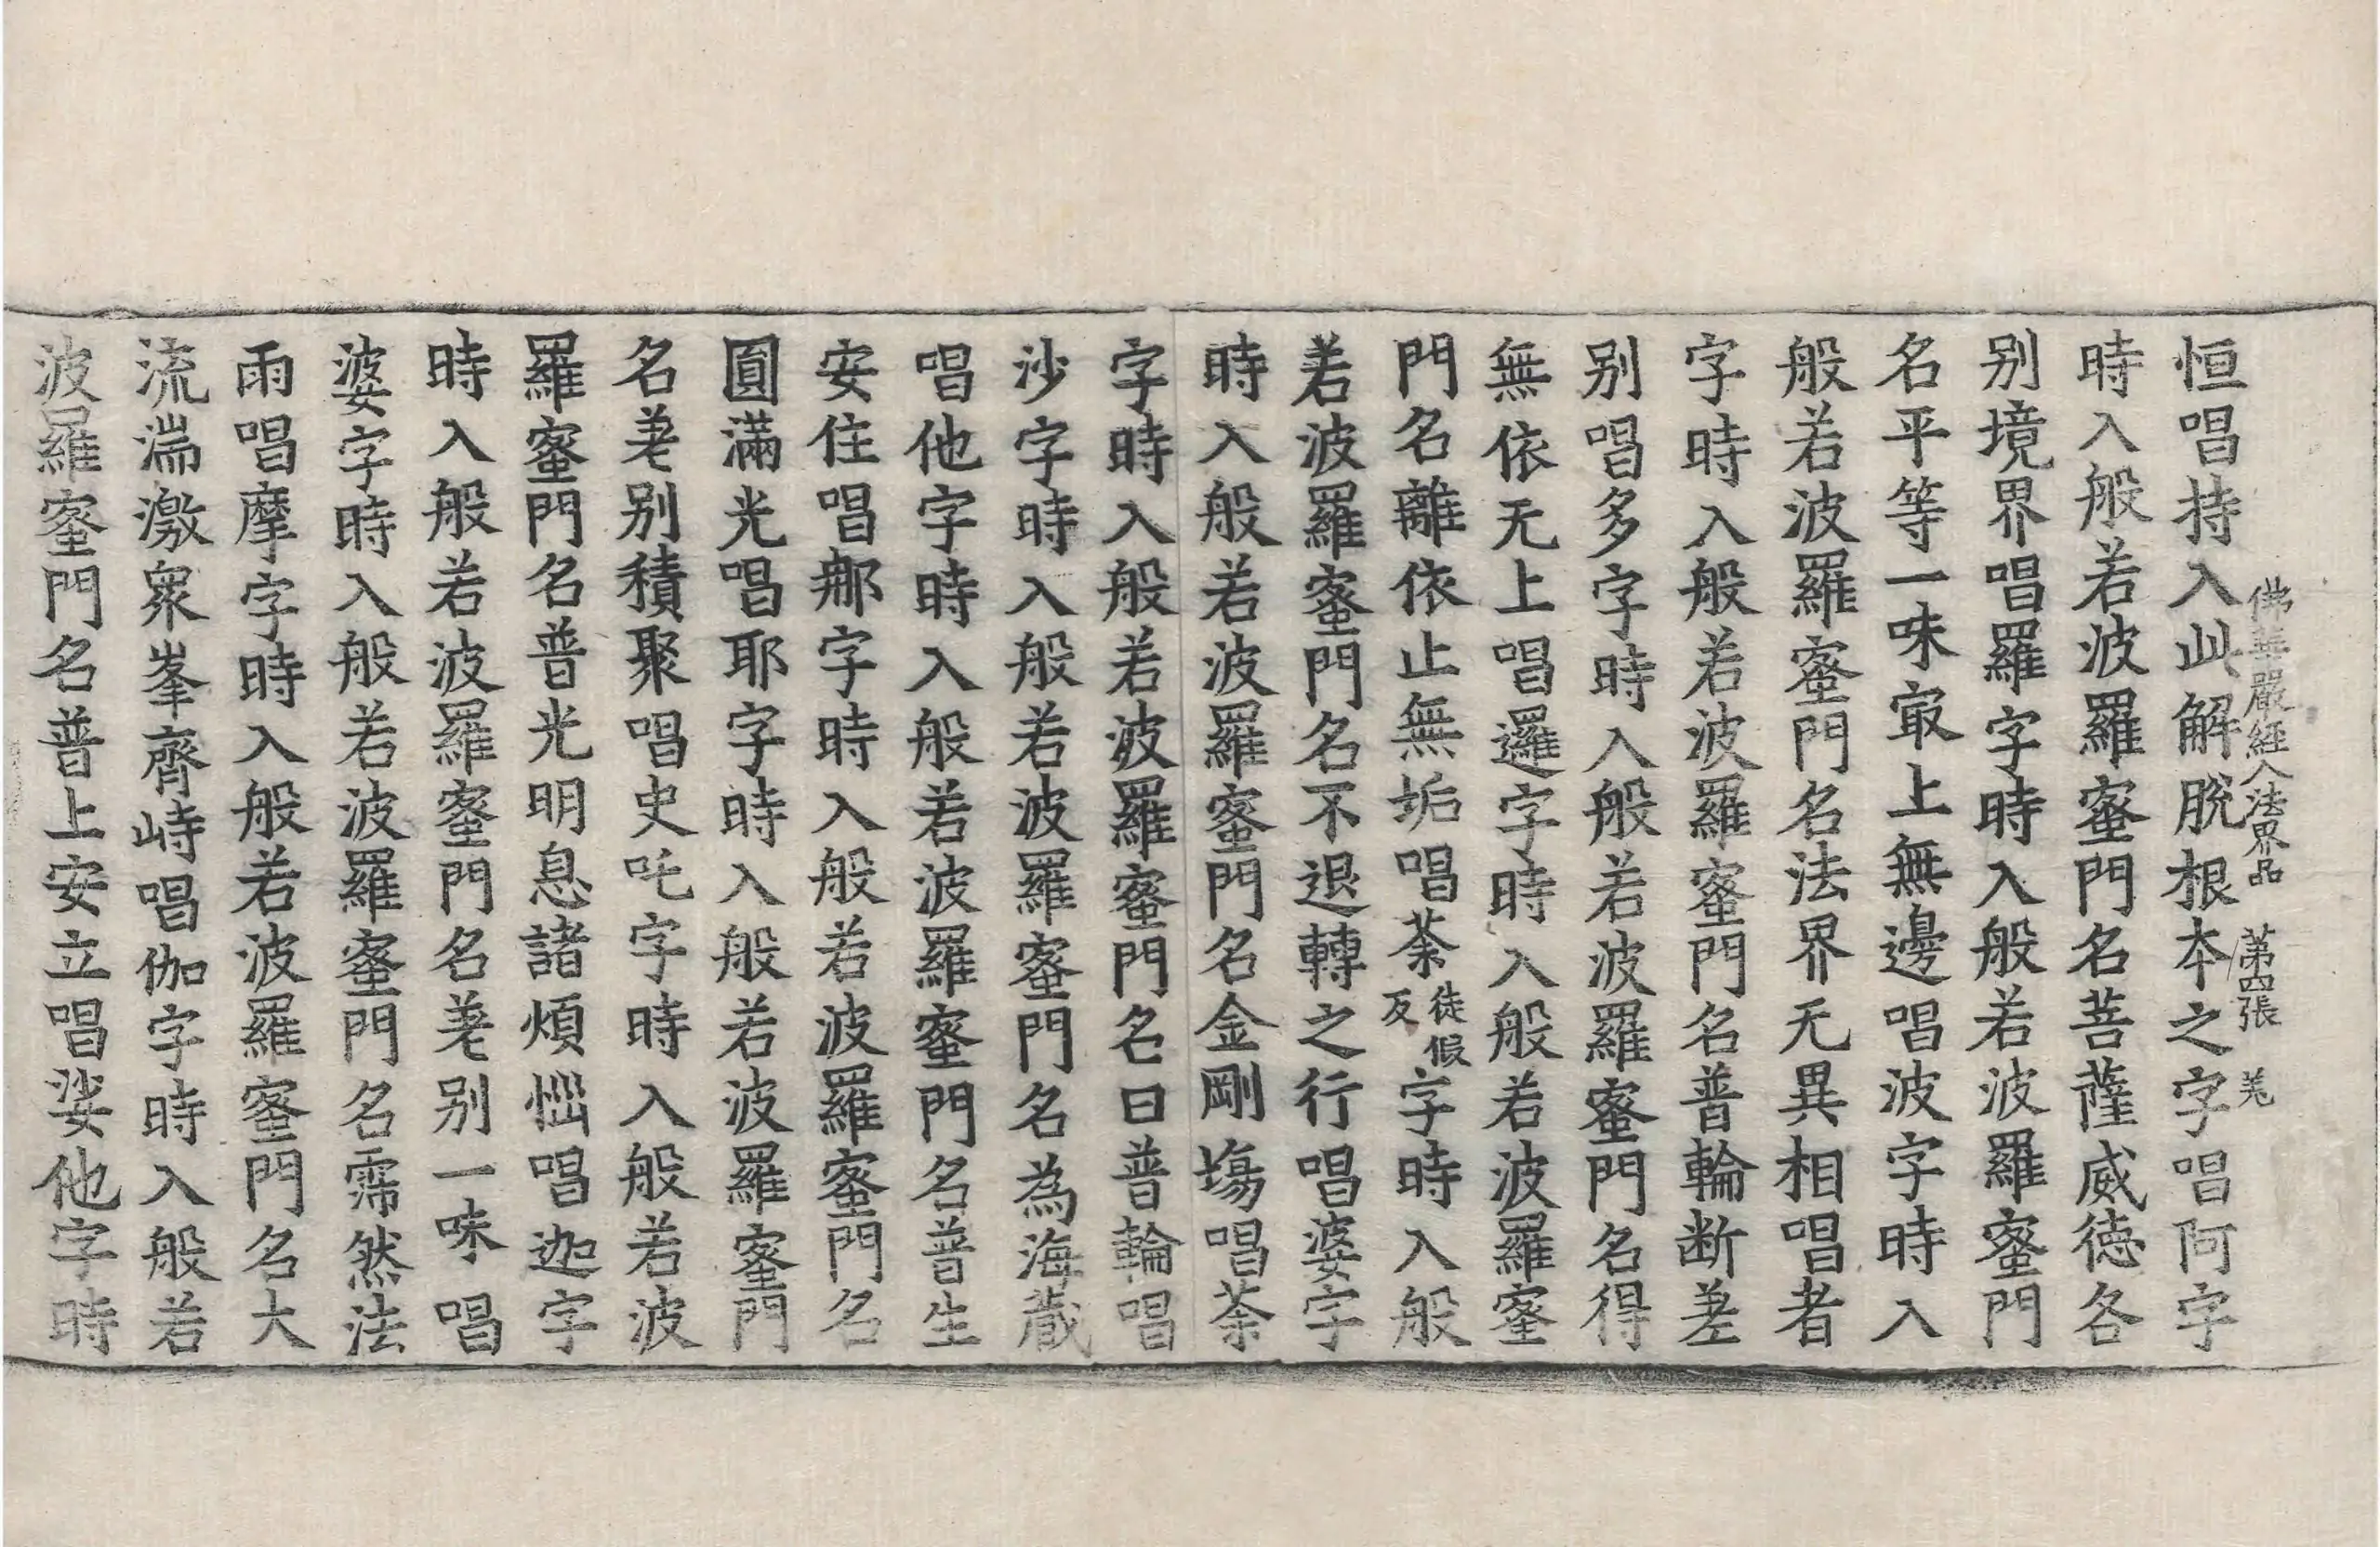 佛華嚴經入法界品 第四張 羌
恒唱持入此解脫根本之字唱阿字
時入般若波羅蜜門名菩薩威德各
別境界唱羅字時入般若波羅蜜門
名平等一味㝡上無邊唱波字時入
般若波羅蜜門名法界无異相唱者
字時入般若波羅蜜門名普輪断差
別唱多字時入般若波羅蜜門名得
無依无上唱邏字時入般若波羅蜜
門名離依止無垢唱荼徒假反字時入般
若波羅蜜門名不退轉之行唱婆字
時入般若波羅蜜門名金剛場唱荼
字時入般若波羅蜜門名曰普輪唱
沙字時入般若波羅蜜門名為海蔵
唱他字時入般若波羅蜜門名普生
安住唱那字時入般若波羅蜜門名
圓滿光唱耶字時入般若波羅蜜門
名差别積聚唱史吒字時入般若波
羅蜜門名普光明息諸煩惱唱迦字
時入般若波羅蜜門名差別一味唱
婆字時入般若波羅蜜門名霈然法
雨唱摩字時入般若波羅蜜門名大
流湍激衆峯齊峙唱伽字時入般若
波羅蜜門名普上安立唱娑他字時